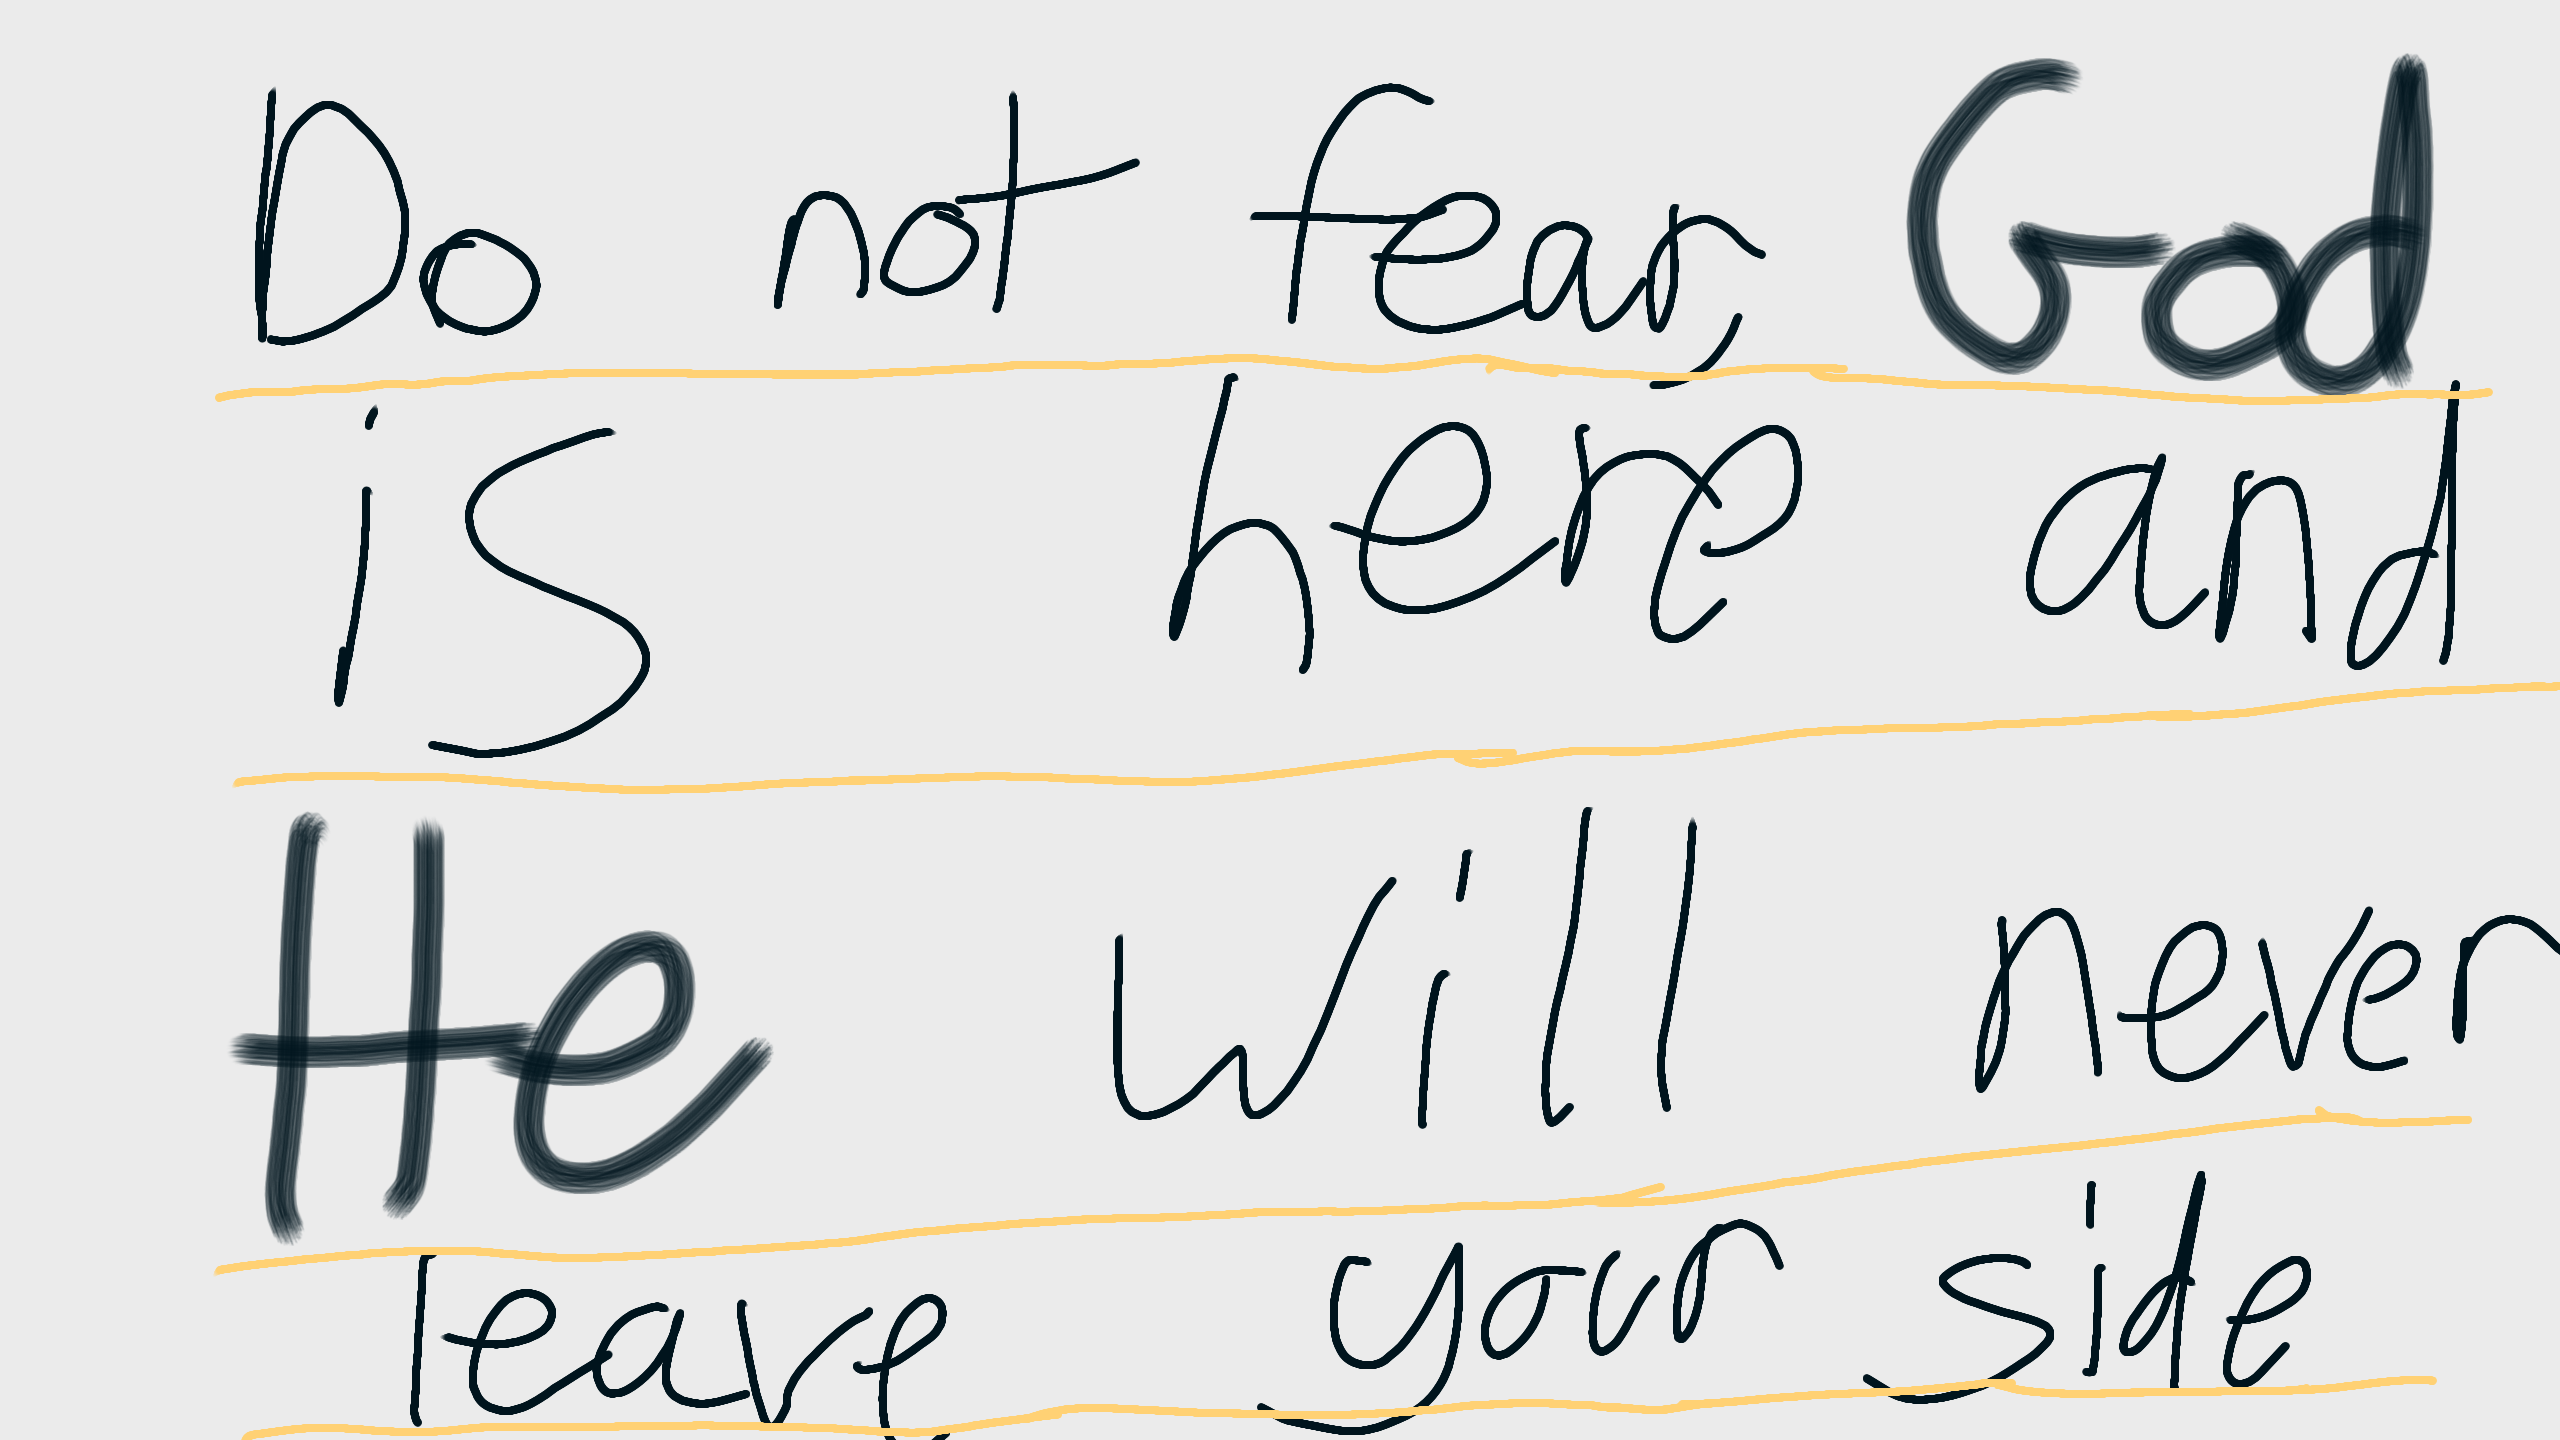 Do not fear, God
is here and
He will never
leave your side